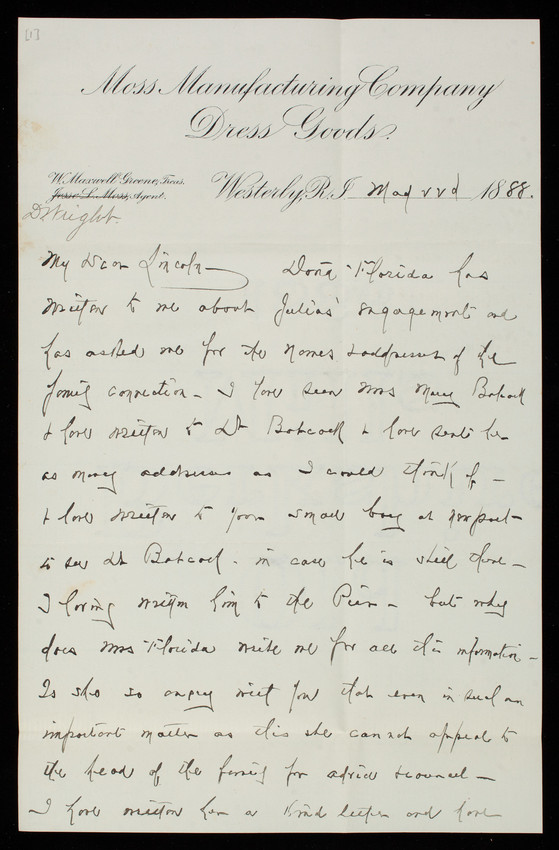 [1]
Moss Manufacturing Company
Dress Goods.
W. Maxwell Greene, Treas.
Jesse L. Moss, Agent.
Westerly, R.I. May 22d 1888.
Dwight.
My Dear Lincoln — Doña Florida has
written to me about Julias' engagement and
has asked me for the names & addresses of the
family connection — I have seen Mrs Mary Babcock
& have written to Dr Babcock & have sent her
as many addresses as I could think of —
& have written to your small boy at Newport
to see Dr Babcock. in case he is still there —
I having written him to the Pier — but why
does Mrs Florida write me for all this information —
Is she so angry with you that even in such an
important matter as this she cannot appeal to
the head of the family for advice & counsel —
I have written her a kind letter and have